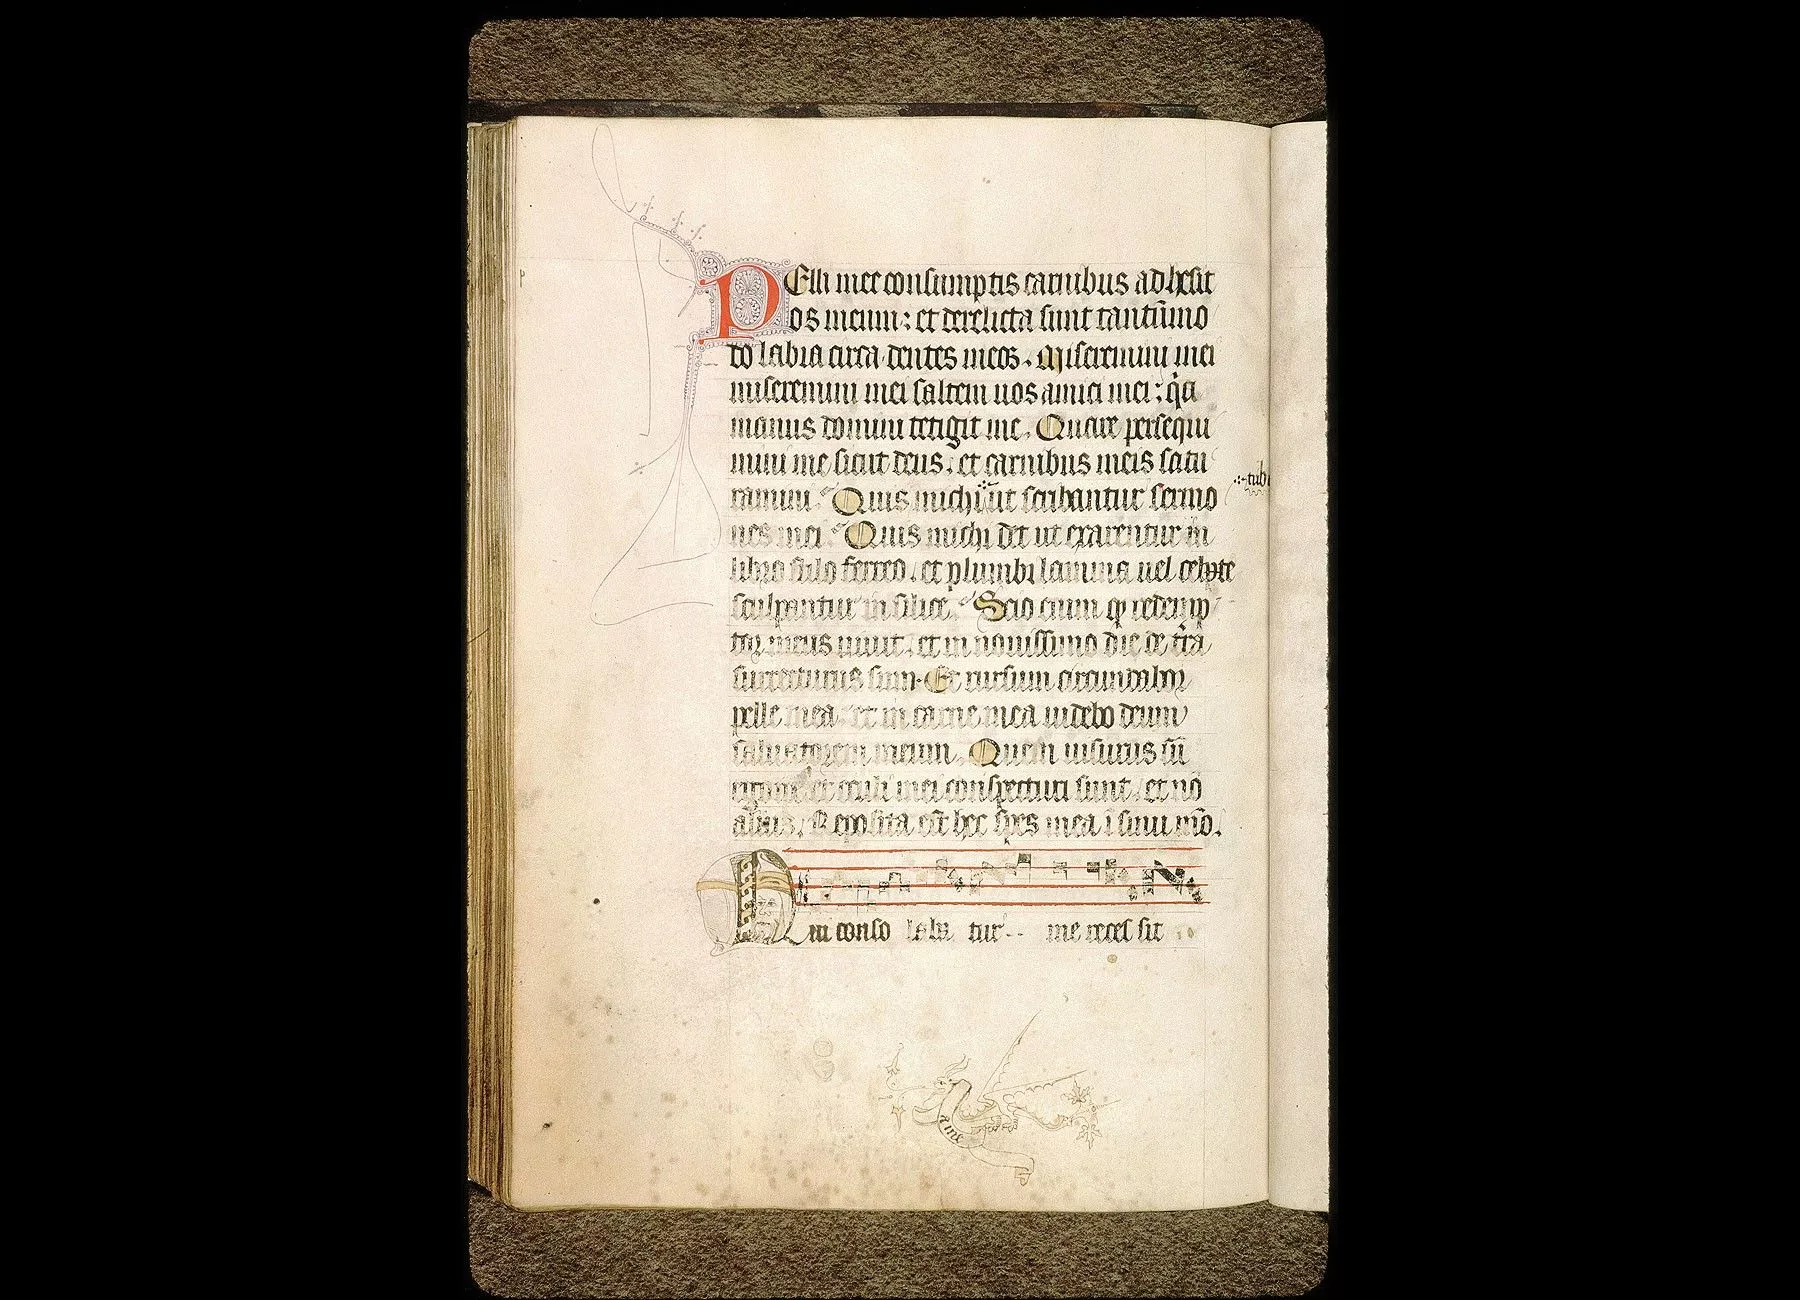 PElli mee consumptis carnibus adhesit
os meum: et derelicta sunt tantūmo
do labia circa dentes meos. Miseremini mei
miseremini mei saltem uos amici mei: qͥa
manus domini tetigit me. Quare persequi
mini me sicut deus. et carnibus meis satu
ramini. Quis michi ut scribantur sermo
nes mei. Quis michi det ut exarentur in
libro stilo ferreo. et plumbi lamina uel celte
sculpantur in silice. Scio enim ꝙ redemp
toꝝ meus uiuit. et in nouissimo die de tr̄a
surrecturus sum. Et rursum circumdabor
pelle mea. et in carne mea uidebo deum
saluatorem meum. Quem uisurus sū
et oculi mei conspecturi sunt. et nō
alius. Reposita est hec spes mea ī sinu mō.
Qui conso laba tur me reces sit
p